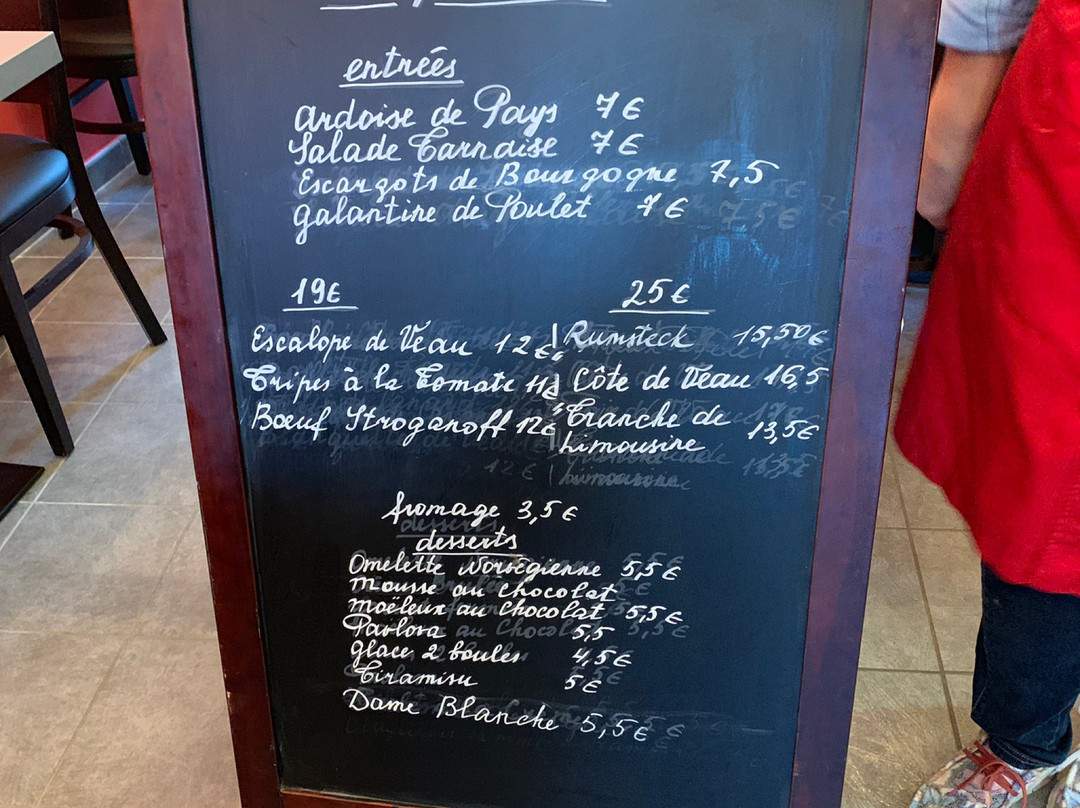 entrées
Ardoise de Pays 7€
Salade Tarnaise 7€
Escargots de Bourgogne 7,5
galantine de Poulet 7€
19€
Escalope de Veau 12€
Tripes à la Tomate 11€
Bœuf Stroganoff 12€
25€
Rumsteck 15,50€
Côte de Veau 16,5
Tranche de 13,5€
Limousine
fromage 3,5€
desserts
Omelette Norvégienne 5,5€
mousse au chocolat
moëleux au chocolat 5,5€
Pavlova 5,5
glace 2 boules 4,5€
Tiramisu 5€
Dame Blanche 5,5€